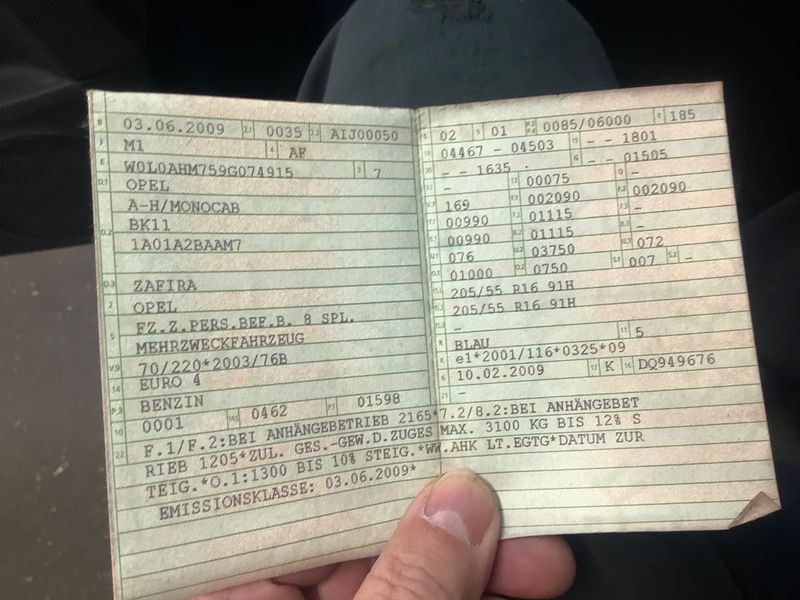 B 03.06.2009 2.1 0035 2.2 AIJ00050
J M1 4 AF
E W0L0AHM759G074915 3 7
D.1 OPEL
A-H/MONOCAB
D.2 BK11
1A01A2BAAM7
D.3 ZAFIRA
2 OPEL
5 FZ.Z.PERS.BEF.B. 8 SPL.
MEHRZWECKFAHRZEUG
V.9 70/220*2003/76B
14 EURO 4
P.3 BENZIN
10 0001 14.1 0462 P.1 01598
22 F.1/F.2:BEI ANHÄNGEBETRIEB 2165*7.2/8.2:BEI ANHÄNGEBET
RIEB 1205*ZUL. GES.-GEW.D.ZUGES MAX. 3100 KG BIS 12% S
TEIG.*O.1:1300 BIS 10% STEIG.*WW.AHK LT.EGTG*DATUM ZUR
EMISSIONSKLASSE: 03.06.2009*
L 02 9 01 P.2 P.4 0085/06000 T 185
18 04467 - 04503 19 - - 1801
20 - - 1635 . G - - 01505
12 - 13 00075 Q -
V.7 169 F.1 002090 F.2 002090
7.1 00990 7.2 01115 7.3 -
8.1 00990 8.2 01115 8.3 -
U.1 076 U.2 03750 U.3 072
O.1 01000 O.2 0750 S.1 007 S.2 -
15.1 205/55 R16 91H
15.2 205/55 R16 91H
15.3 -
R BLAU 11 5
K e1*2001/116*0325*09
6 10.02.2009 17 K 16 DQ949676
21 -